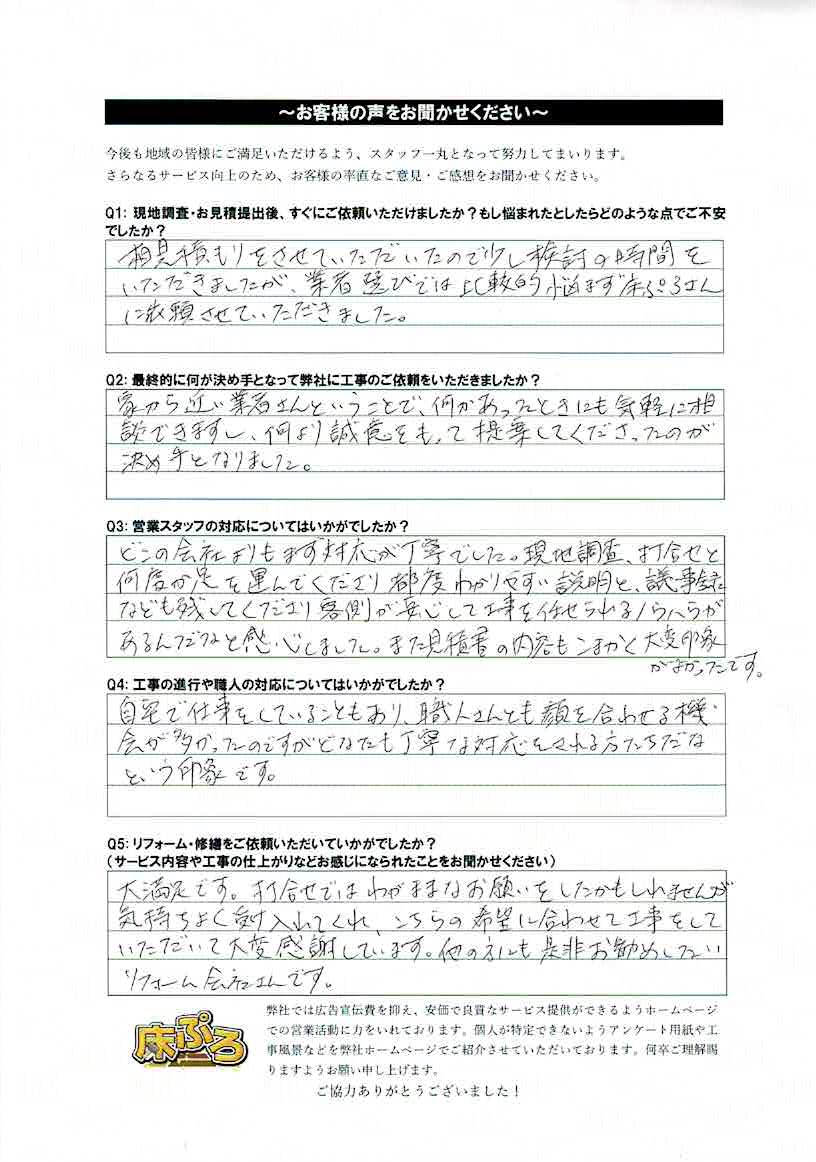 ～お客様の声をお聞かせください～
今後も地域の皆様にご満足いただけるよう、スタッフ一丸となって努力してまいります。
さらなるサービス向上のため、お客様の率直なご意見・ご感想をお聞かせください。
Q1: 現地調査・お見積提出後、すぐにご依頼いただけましたか？もし悩まれたとしたらどのような点でご不安
でしたか？
相見積もりをさせていただいたので少し検討の時間を
いただきましたが、業者選びでは比較的悩まず床ぷろさん
に依頼させていただきました。
Q2: 最終的に何が決め手となって弊社に工事のご依頼をいただきましたか？
家から近い業者さんということで、何かあったときにも気軽に相
談できますし、何より誠意をもって提案してくださったのが
決め手となりました。
Q3: 営業スタッフの対応についてはいかがでしたか？
どこの会社よりもまず対応が丁寧でした。現地調査、打合せと
何度か足を運んでくださり都度わかりやすい説明と、議事録
なども残してくださり客側が安心して工事を任せられるノウハウが
あるんだなと感心しました。また見積書の内容もこまかく大変印象
がよかったです。
Q4: 工事の進行や職人の対応についてはいかがでしたか？
自宅で仕事をしていることもあり、職人さんとも顔を合わせる機
会が多かったのですがどなたも丁寧な対応をされる方たちだな
という印象です。
Q5: リフォーム・修繕をご依頼いただいていかがでしたか？
（サービス内容や工事の仕上がりなどお感じになられたことをお聞かせください）
大満足です。打合せではわがままなお願いをしたかもしれませんが
気持ちよく受け入れてくれ、こちらの希望に合わせて工事をして
いただいて大変感謝しています。他の方にも是非お勧めしたい
リフォーム会社さんです。
床ぷろ
弊社では広告宣伝費を抑え、安価で良質なサービス提供ができるようホームページ
での営業活動に力をいれております。個人が特定できないようアンケート用紙や工
事風景などを弊社ホームページでご紹介させていただいております。何卒ご理解賜
りますようお願い申し上げます。
ご協力ありがとうございました！